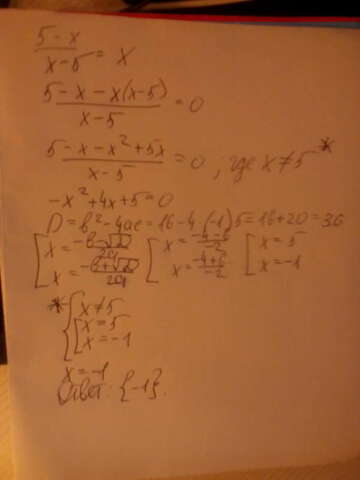 (5-x)/(x-5) = x
(5-x-x(x-5))/(x-5) = 0
(5-x-x²+5x)/(x-5) = 0 ; где x≠5 *
-x²+4x+5=0
D=b²-4ac=16-4·(-1)5=16+20=36
[x=(-b-√D)/2a [x=(-4-6)/-2 [x=5
[x=(-b+√D)/2a [x=(-4+6)/-2 [x=-1
* {x≠5
[x=5
[x=-1
x=-1
Ответ: {-1}.